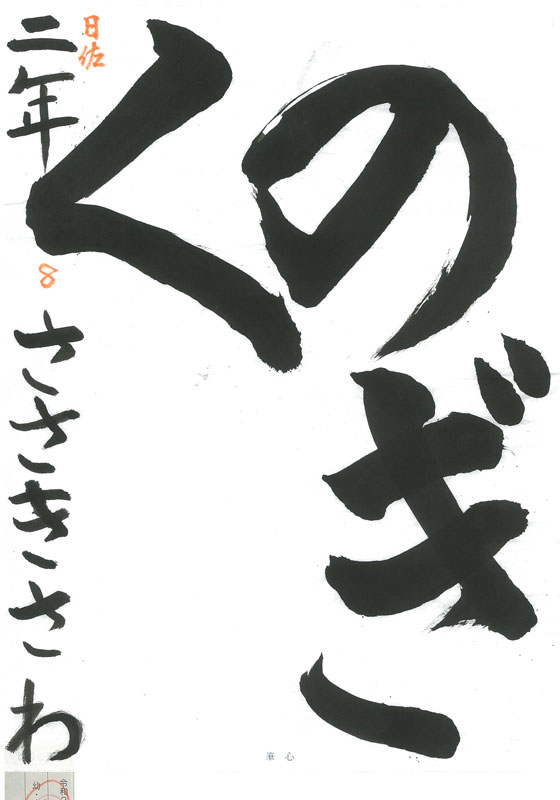 のぎ
く
日佐
二年
8
ささきさわ
心筆
令和
幼